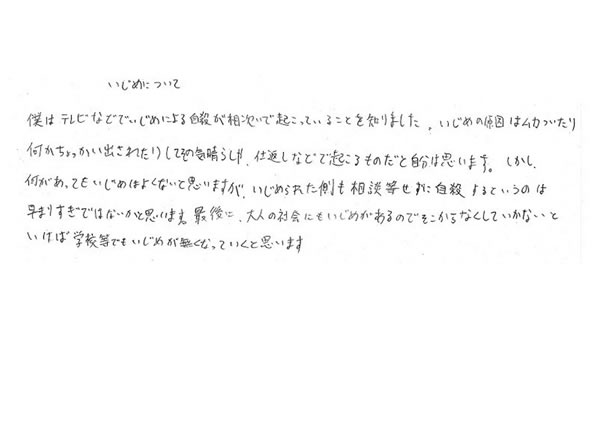 いじめについて
僕はテレビなどでいじめによる自殺が相次いで起こっていることを知りました。いじめの原因はムカついたり
何かちょっかい出されたりしてその気晴らしや、仕返しなどで起こるものだと自分は思います。しかし、
何があってもいじめはよくないと思いますが、いじめられた側も相談等せずに自殺するというのは
早まりすぎではないかと思います。最後に、大人の社会にもいじめがあるのでそこからなくしていかないと
いけば学校等でもいじめが無くなっていくと思います